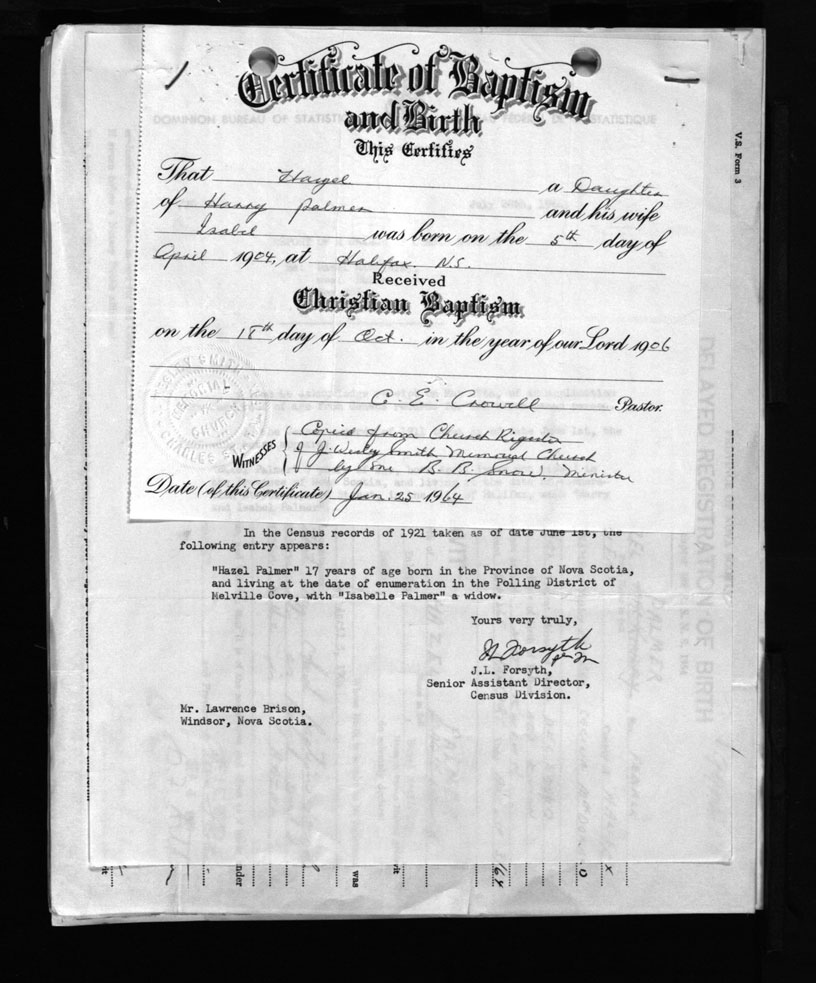 Certificate of Baptism
and Birth
DOMINION BUREAU OF STATIST
STATISTIQUE
This Certifies
V.S. Form 3
That Hazel a Daughter
of Harry Palmer and his wife
Isabel was born on the 5th day of
April 1904, at Halifax N.S.
Received
Christian Baptism
on the 18th day of Oct. in the year of our Lord 1906
C. E. Crowell Pastor.
WITNESSES
Copied from Church Register
of J. Wesley Smith Memorial Church
by me B. B. Snow, Minister
Date (of this Certificate) Jan. 25 1964
SMITH
CHURCH
CHARLES
DELAYED REGISTRATION OF BIRTH
PALMER
In the Census records of 1921 taken as of date June 1st, the
following entry appears:
"Hazel Palmer" 17 years of age born in the Province of Nova Scotia,
and living at the date of enumeration in the Polling District of
Melville Cove, with "Isabelle Palmer" a widow.
Yours very truly,
J.L. Forsyth
J.L. Forsyth,
Senior Assistant Director,
Census Division.
Mr. Lawrence Brison,
Windsor, Nova Scotia.
under
was
64